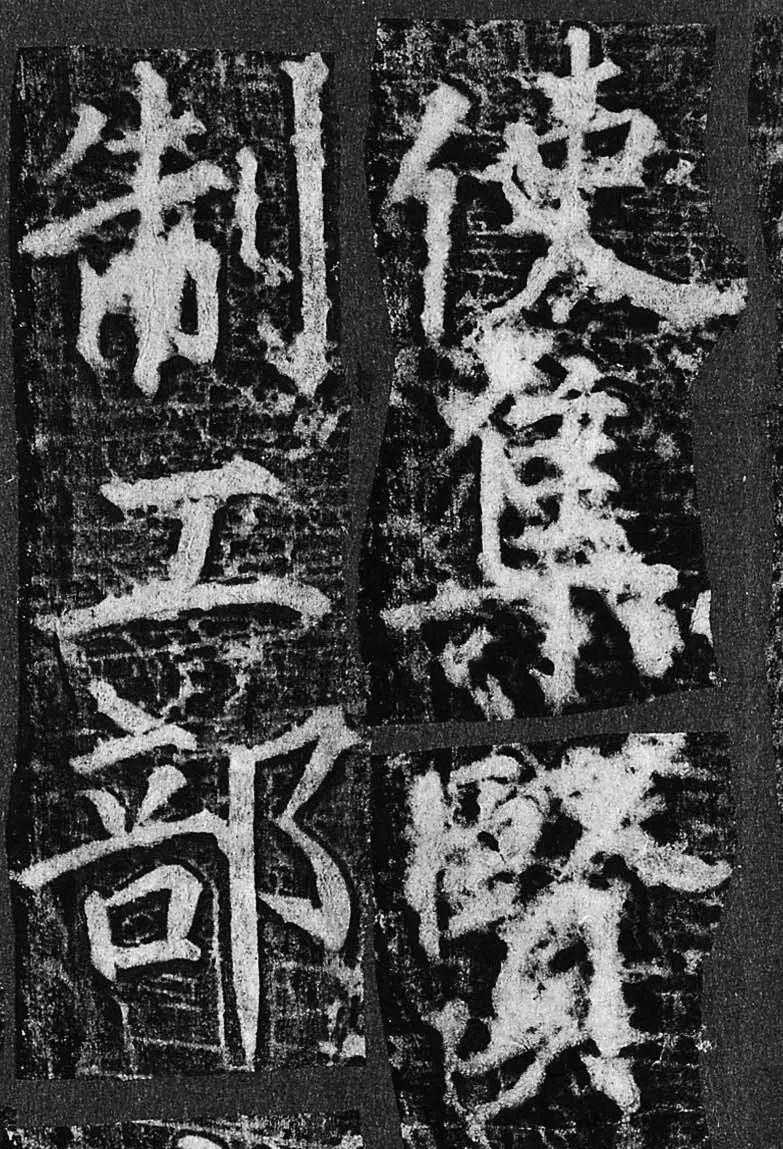 使集賢
制工部